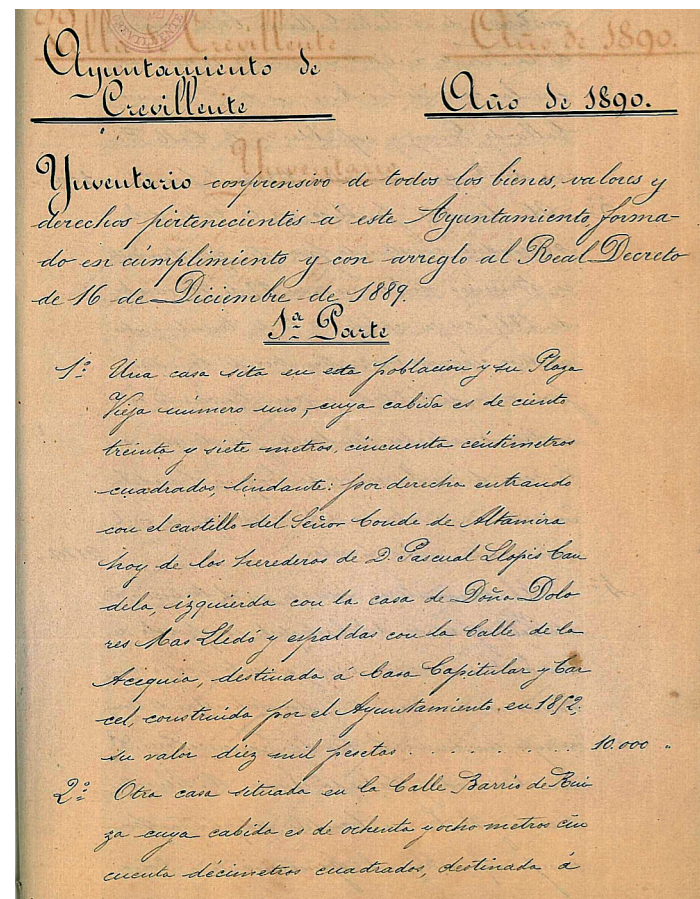 Ayuntamiento de
Crevillente
Año de 1890.
Ynventario conprensivo de todos los bienes, valores y
derechos pertenecientes á este Ayuntamiento, forma-
do en cumplimiento y con arreglo al Real Decreto
de 16 de Diciembre de 1889.
1ª Parte
1º Una casa sita en esta poblacion y su Plaza
Vieja número uno, cuya cabida es de ciento
treinta y siete metros, cincuenta céntimetros
cuadrados, lindante: por derecha entrando
con el castillo del Señor Conde de Altamira
hoy de los herederos de D. Pascual Llopis Can
dela, izquierda con la casa de Doña Dolo
res Mas Lledó y espaldas con la Calle de la
Acequia, destinada á Casa Capitular y Car
cel, construida por el Ayuntamiento en 1852.
su valor diez mil pesetas . . . . . . . . . . 10.000 "
2º Otra casa situada en la Calle Barrio de Rui
za cuya cabida es de ochenta y ocho metros cin
cuenta décimetros cuadrados, destinada á